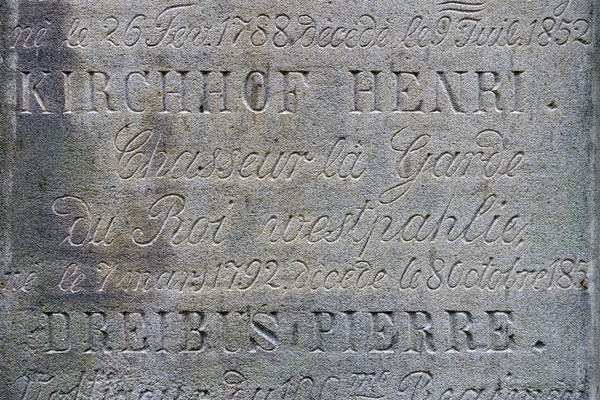 né le 26 Fev. 1788. décédé le 9 Juil. 1852
KIRCHHOF HENRI.
Chasseur la Garde
du Roi westpahlie,
né le 7 mars 1792. décédé le 8 Octobre 185
DREIBUS PIERRE.
Voltigeur du 106 me Regiment